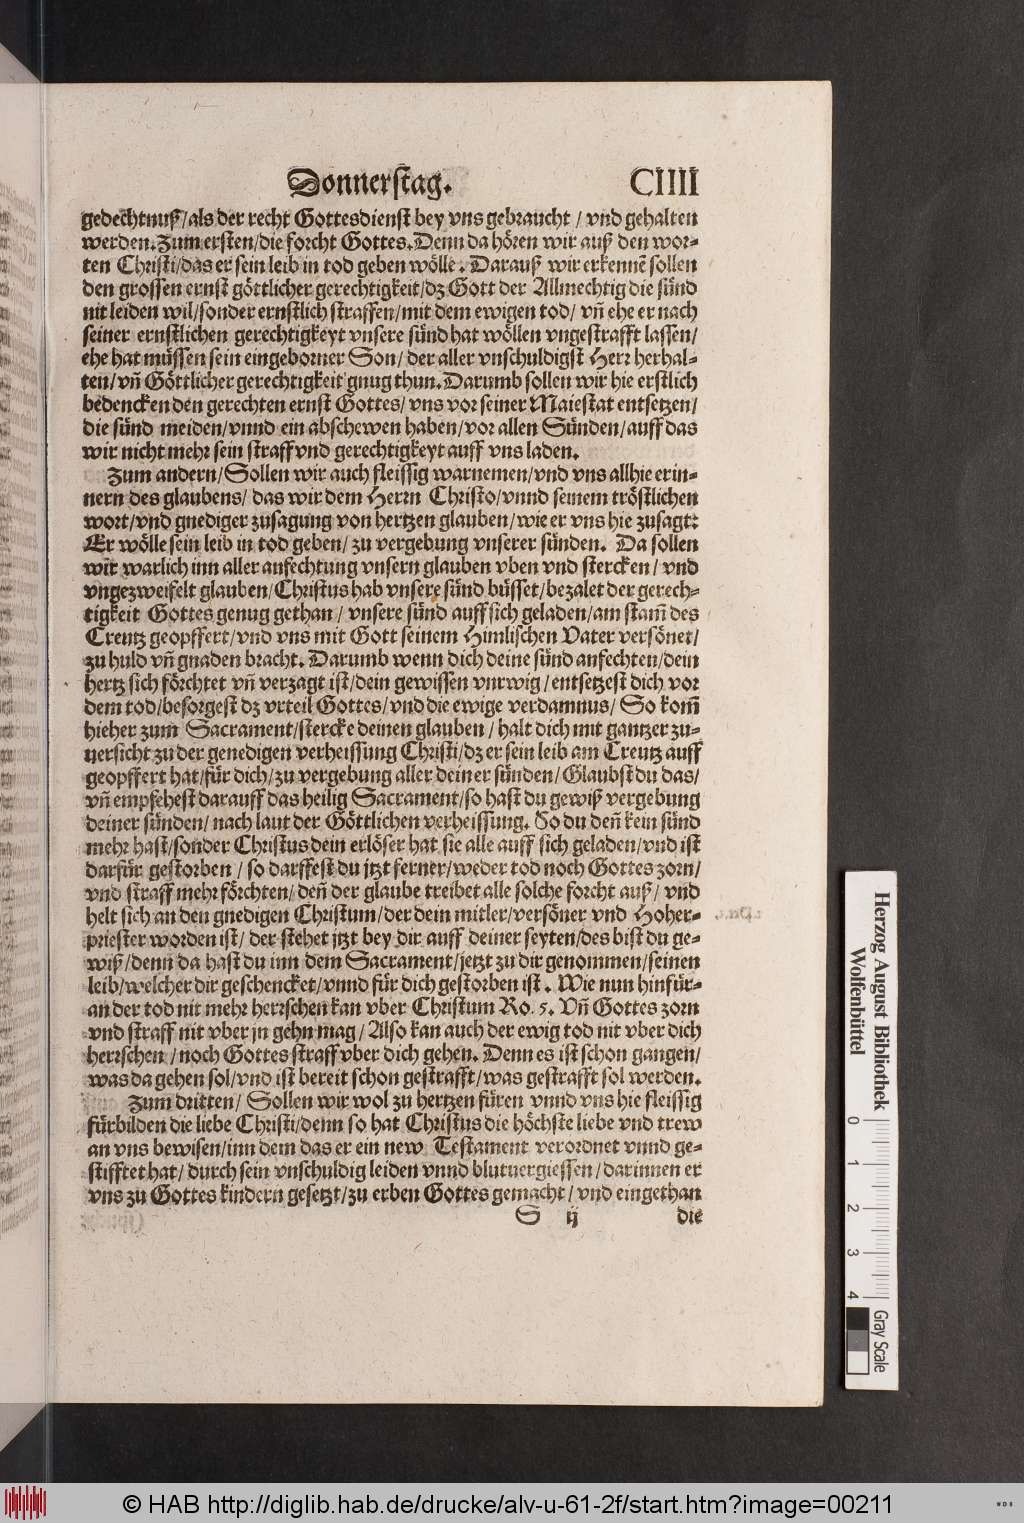 Donnerstag. CIIII
gedechtnuß/als der recht Gottesdienst bey vns gebraucht / vnd gehalten
werden. Zum ersten/die forcht Gottes. Denn da hören wir auß den wor-
ten Christi/das er sein leib in tod geben wölle. Darauß wir erkennē sollen
den grossen ernst göttlicher gerechtigkeit/dz Gott der Allmechtig die sünd
nit leiden wil/sonder ernstlich straffen/mit dem ewigen tod/ vñ ehe er nach
seiner ernstlichen gerechtigkeyt vnsere sünd hat wöllen vngestrafft lassen/
ehe hat müssen sein eingeborner Son/ der aller vnschuldigst Herr herhal-
ten/vñ Göttlicher gerechtigkeit gnug thun. Darumb sollen wir hie erstlich
bedencken den gerechten ernst Gottes/ vns vor seiner Maiestat entsetzen/
die sünd meiden/vnnd ein abschewen haben/vor allen Sünden/auff das
wir nicht mehr sein straff vnd gerechtigkeyt auff vns laden.
Zum andern/Sollen wir auch fleissig warnemen/vnd vns allhie erin-
nern des glaubens/ das wir dem Herrn Christo/vnnd seinem tröstlichen
wort/vnd gnediger zusagung von hertzen glauben/wie er vns hie zusagt:
Er wölle sein leib in tod geben/ zu vergebung vnserer sünden. Da sollen
wir warlich inn aller anfechtung vnsern glauben vben vnd stercken/ vnd
vngezweifelt glauben/Christus hab vnsere sünd büsset/bezalet der gerech-
tigkeit Gottes genug gethan / vnsere sünd auff sich geladen/am stam̃ des
Creutz geopffert/vnd vns mit Gott seinem Himlischen Vater versönet/
zu huld vñ gnaden bracht. Darumb wenn dich deine sünd anfechten/dein
hertz sich förchtet vñ verzagt ist/dein gewissen vnrwig/entsetzest dich vor
dem tod/besorgest dz vrteil Gottes/vnd die ewige verdamnus/ So kom̃
hieher zum Sacrament/stercke deinen glauben / halt dich mit gantzer zu-
uersicht zu der genedigen verheissung Christi/dz er sein leib am Creutz auff
geopffert hat/für dich/zu vergebung aller deiner sünden/Glaubst du das/
vñ empfehest darauff das heilig Sacrament/so hast du gewiß vergebung
deiner sünden/ nach laut der Göttlichen verheissung. So du deñ kein sünd
mehr hast/sonder Christus dein erlöser hat sie alle auff sich geladen/vnd ist
darfür gestorben / so darffest du jtzt ferner/weder tod noch Gottes zorn/
vnd straff mehr förchten/deñ der glaube treibet alle solche forcht auß/ vnd
helt sich an den gnedigen Christum/der dein mitler/versöner vnd Hoher-
priester worden ist/ der stehet jtzt bey dir auff deiner seyten/des bist du ge-
wiß/denn da hast du inn dem Sacrament/jetzt zu dir genommen/seinen
leib/welcher dir geschencket/vnnd für dich gestorben ist. Wie nun hinfür-
an der tod nit mehr herrschen kan vber Christum Ro. 5. Vñ Gottes zorn
vnd straff nit vber jn gehn mag/ Also kan auch der ewig tod nit vber dich
herrschen / noch Gottes straff vber dich gehen. Denn es ist schon gangen/
was da gehen sol/vnd ist bereit schon gestrafft/was gestrafft sol werden.
Zum dritten/ Sollen wir wol zu hertzen füren vnnd vns hie fleissig
fürbilden die liebe Christi/denn so hat Christus die höchste liebe vnd trew
an vns bewisen/inn dem das er ein new Testament verordnet vnnd ge-
stifftet hat/ durch sein vnschuldig leiden vnnd blutuergiessen/darinnen er
vns zu Gottes kindern gesetzt/zu erben Gottes gemacht/ vnd eingethan
S ij die
Herzog August Bibliothek
Wolfenbüttel
0 1 2 3 4
Gray Scale
© HAB http://diglib.hab.de/drucke/alv-u-61-2f/start.htm?image=00211